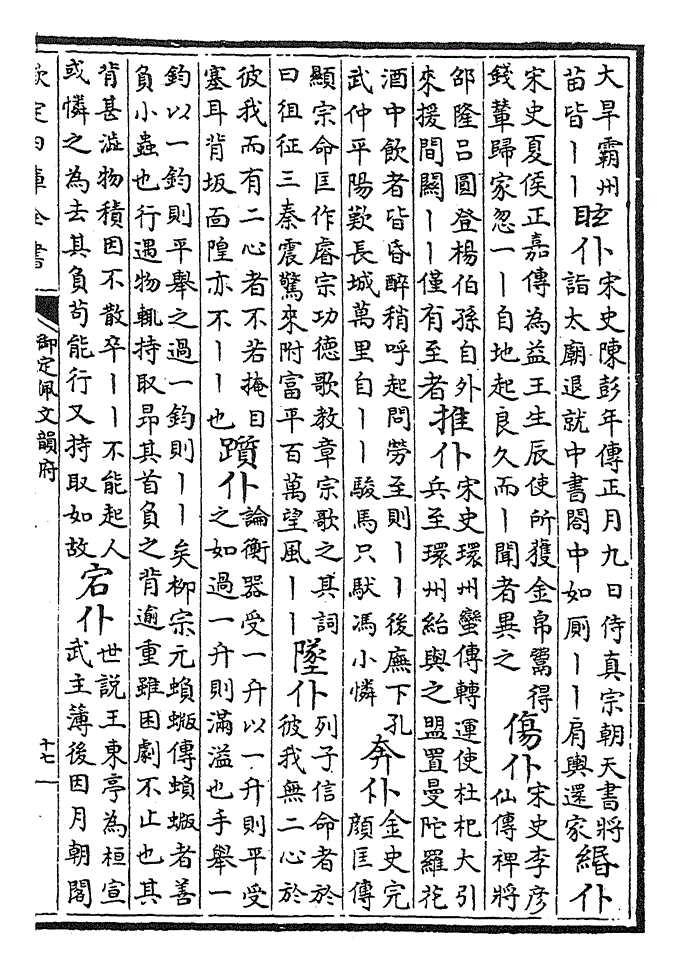 大旱霸州
苗皆丨丨
眩仆
宋史陳彭年傳正月九日侍真宗朝天書將
詣太廟退就中書閣中如厠丨丨肩輿還家
緡仆
宋史夏侯正嘉傳為益王生辰使所獲金帛鬻得
錢輦歸家忽一丨自地起良久而丨聞者異之
傷仆
宋史李彥
仙傳裨將
邵隆呂圓登楊伯孫自外
來援間關丨丨僅有至者
推仆
宋史環州蠻傳轉運使杜杞大引
兵至環州紿與之盟置曼陀羅花
酒中飲者皆昏醉稍呼起問勞至則丨丨後廡下孔
武仲平陽歎長城萬里自丨丨駿馬只馱馮小憐
奔仆
金史完
顏匡傳
顯宗命匡作睿宗功德歌教章宗歌之其詞
曰徂征三秦震驚來附富平百萬望風丨丨
墜仆
列子信命者於
彼我無二心於
彼我而有二心者不若掩目
塞耳背坂面隍亦不丨丨也
躓仆
論衡器受一升以一升則平受
之如過一升則滿溢也手舉一
鈞以一鈞則平舉之過一鈞則丨丨矣柳宗元蝜蝂傳蝜蝂者善
負小蟲也行遇物輒持取昂其首負之背逾重雖困劇不止也其
背甚澁物積因不散卒丨丨不能起人
或憐之為去其負苟能行又持取如故
宕仆
世說王東亭為桓宣
武主簿後因月朝閣
欽定四庫全書
御定佩文韻府
十七